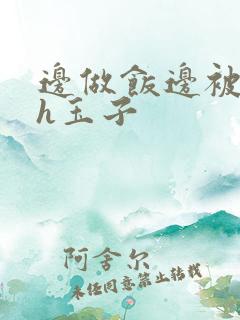 邊做飯邊被
h玉子
阿舍尔
未经同意禁止转载